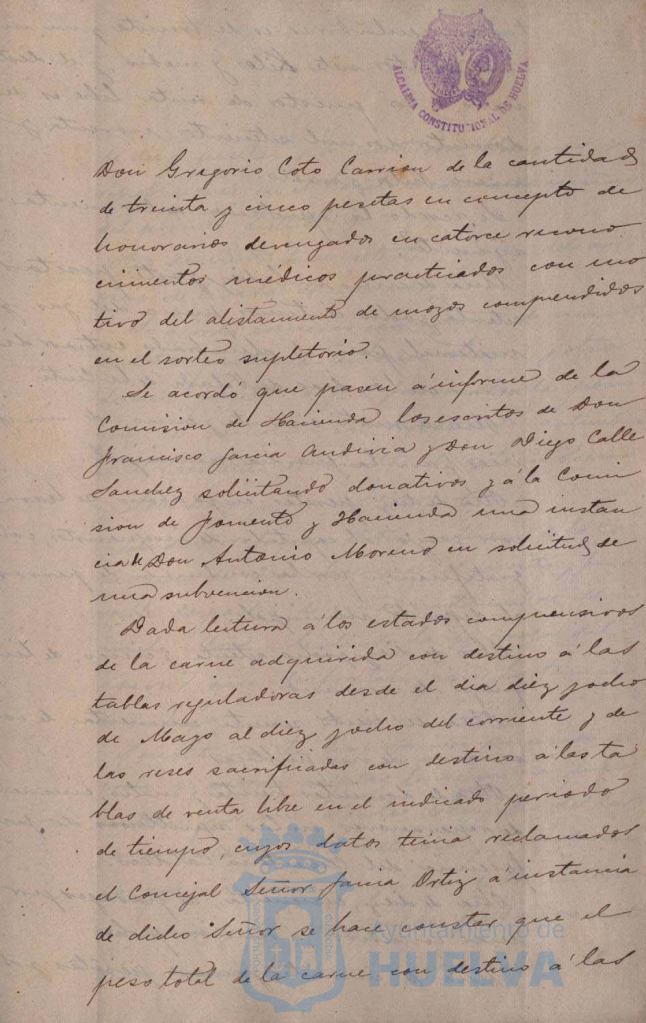 ALCALDIA CONSTITUCIONAL DE HUELVA
Don Gregorio Coto Carrion de la cantidad
de treinta y cinco pesetas en concepto de
honorarios devengados en catorce recono
cimientos médicos practicados con mo
tivo del alistamiento de mozos comprendidos
en el sorteo supletorio.
Se acordó que pasen á informe de la
Comision de Hacienda los escritos de Don
Francisco Garcia Andivia y Don Diego Calle
Sanchez solicitando donativos y á la Comi
sion de Fomento y Hacienda una instan
cia de Don Antonio Moreno en solicitud de
una subvencion.
Dada lectura á los estados comprensivos
de la carne adquirida con destino á las
tablas reguladoras desde el dia diez y ocho
de Mayo al diez y ocho del corriente y de
las reses sacrificadas con destino á las ta
blas de venta libre en el indicado periodo
de tiempo, cuyos datos tenia reclamados
el Concejal Señor Garcia Ortiz á instancia
de dicho Señor se hace constar que el
peso total de la carne con destino á las
Ayuntamiento de
HUELVA